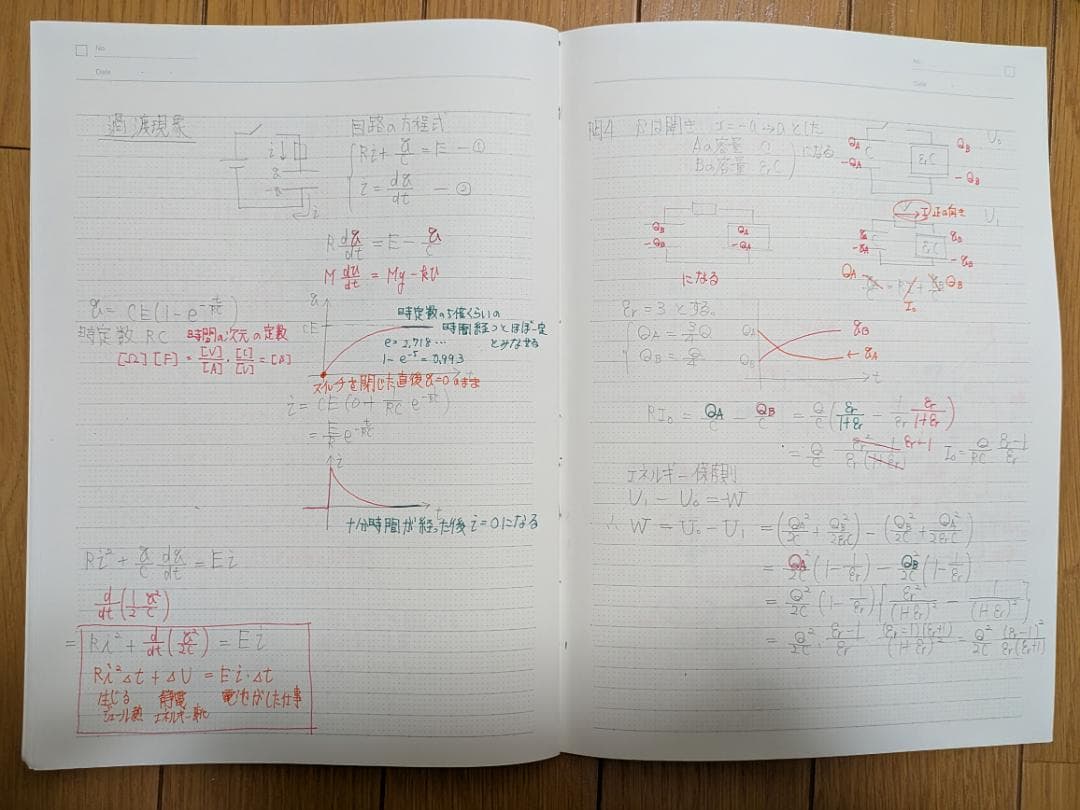 No
Date
過渡現象
回路の方程式
Ri + q/C = E ー①
i = dq/dt ー②
R dq/dt = E - q/C
M dv/dt = Mg - kv
q = CE(1 - e^{-t/RC})
時定数 RC 時間の次元の定数
[Ω][F] = [V]/[A]・[C]/[V] = [s]
q
CE
時定数の5倍くらいの
時間経つとほぼ一定
とみなせる
e = 2.718…
1 - e^{-5} = 0.993
t
スイッチを閉じた直後 q=0のまま
i = CE(0 + 1/RC e^{-t/RC})
= E/R e^{-t/RC}
i
t
十分時間が経った後 i=0になる
Ri² + q/C dq/dt = Ei
d/dt(1/2 q²/C)
= Ri² + d/dt(q²/2C) = Ei
Ri²Δt + ΔU = Ei・Δt
生じる 静電 電池がした仕事
ジュール熱 エネルギー変化
No
Date
問4
Aの容量 C
Bの容量 εrC
になる
QA
-QA
C
εrC
QB
-QB
U₀
I 正の向き
U₁
QB
-QB
QA
-QA
になる
qA
-qA
εrC
qB
-qB
QA
QB
I₀
εr = 3 とする。
QA = 3/4 Q
QB = Q/4
QA
QB
qB
qA
t
RI₀ = QA/C - QB/C = Q/C (εr/1+εr - 1/εr εr/1+εr)
εr-1 I₀ = Q/RC εr-1/εr
エネルギー保存則
U₁ - U₀ = -W
∴ W = U₀ - U₁ = (QA²/2C + QB²/2εrC) - (QB²/2C + QA²/2εrC)
= QA²/2C (1 - 1/εr) - QB²/2C (1 - 1/εr)
= Q²/2C (1 - 1/εr) {εr²/(1+εr)² - 1/(1+εr)²}
= Q²/2C・εr-1/εr・(εr-1)(εr+1)/(1+εr)² = Q²/2C (εr-1)²/εr(εr+1)